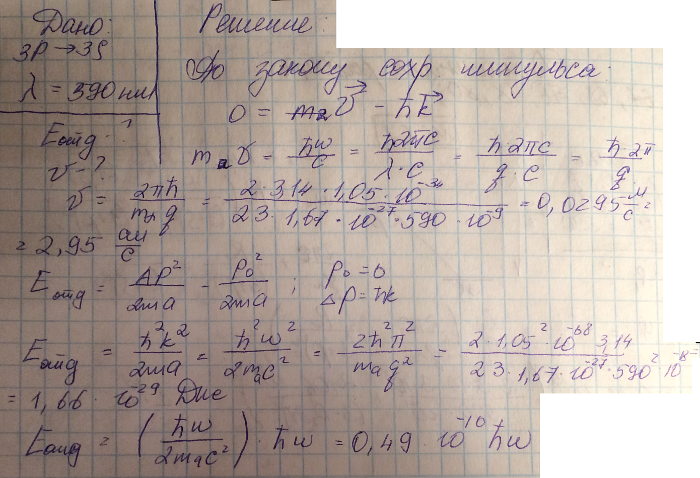 Дано:
3P → 3S
λ = 390 нм
Eотд - ?
v - ?
Решение:
По закону сохр. импульса:
0 = mₐv⃗ - ħk⃗
mₐv = ħω/c = ħ2πc/λ·c = ħ2πc/q·c = ħ2π/q
v = 2πħ/mₐq = 2·3,14·1,05·10⁻³⁴/23·1,67·10⁻²⁷·590·10⁻⁹ = 0,0295 м/с =
= 2,95 см/с
Eотд = ΔP²/2ma - P₀²/2ma ; P₀ = 0
Δp = ħk
Eотд = ħ²k²/2ma = ħ²ω²/2mₐc² = 2ħ²π²/maq² = 2·1,05²·10⁻⁶⁸·3,14/23·1,67·10⁻²⁷·590²·10⁻¹⁸ =
= 1,66·10⁻²⁹ Дж
Eотд = (ħω/2mₐc²)·ħω = 0,49·10⁻¹⁰ ħω